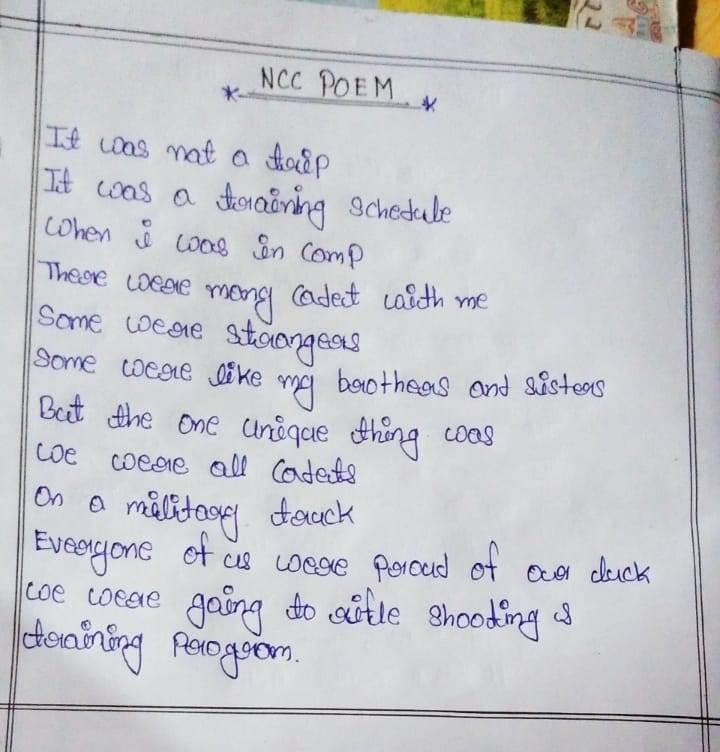 NCC POEM
It was not a trip
It was a training schedule
When i was in camp
There were many Cadet with me
Some were strangers
Some were like my brothers and sisters
But the one unique thing was
we were all Cadets
On a military truck
Everyone of us were Proud of our duck
we were going to rifle shooting &
training Program.